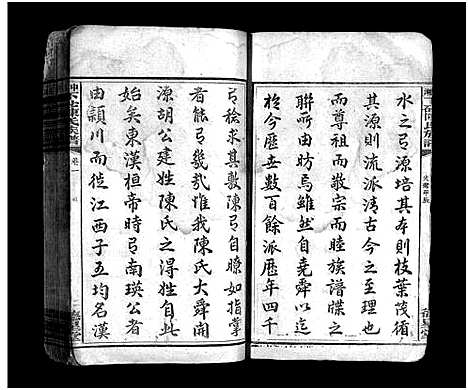 水之弓源培其本則枝葉茂循
其源則流派清古今之至理也
而尊祖而敬宗而睦族譜牒之
聯所由昉焉雖然自堯舜以迄
於今歷世數百餘派歷年四千
弓檢求其數陳弓自瞭如指掌
者能弓幾哉惟我陳氏大舜開
源胡公建姓陳氏之得姓自此
始矣東漢桓帝時弓南瑛公者
由潁川而徙江西子五均名漢
陳氏族譜
卷一